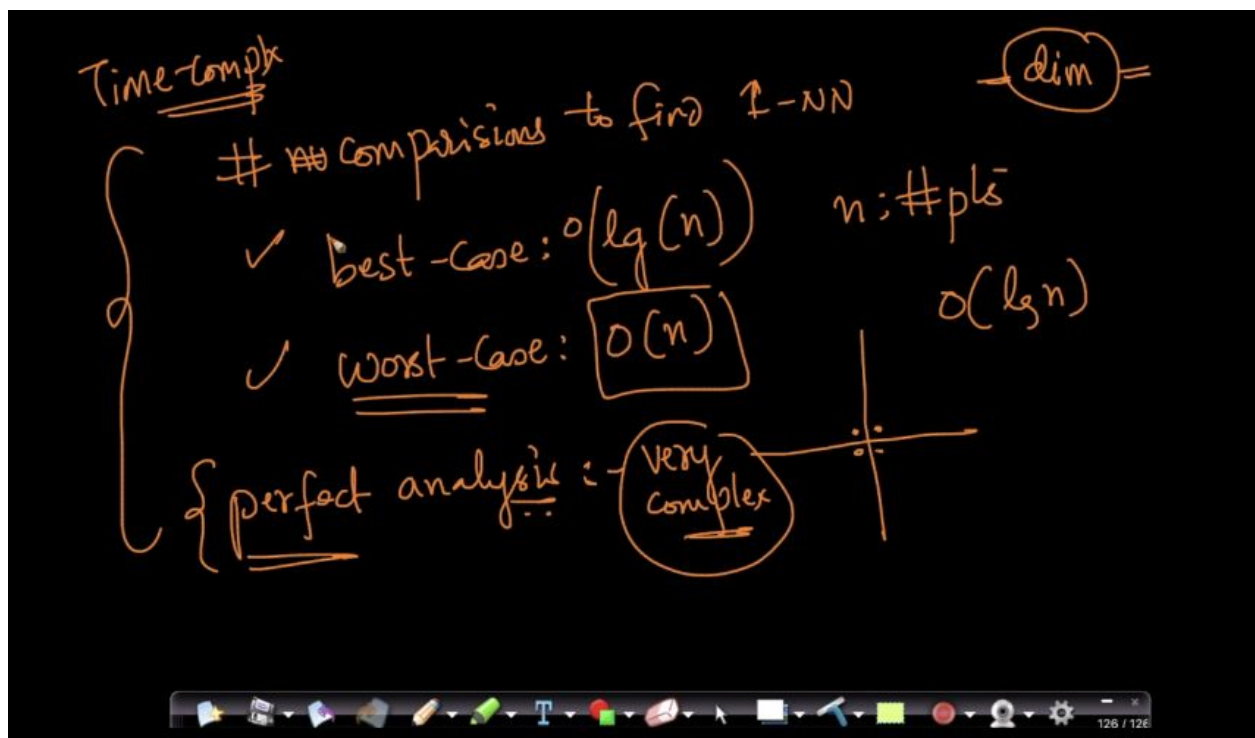 Time-Complx
dim
# comparisions to find 1-NN
n: #pts
best-case: O(lg(n))
O(lg n)
worst-case: O(n)
perfect analysis :- very
complex
T
126 / 126